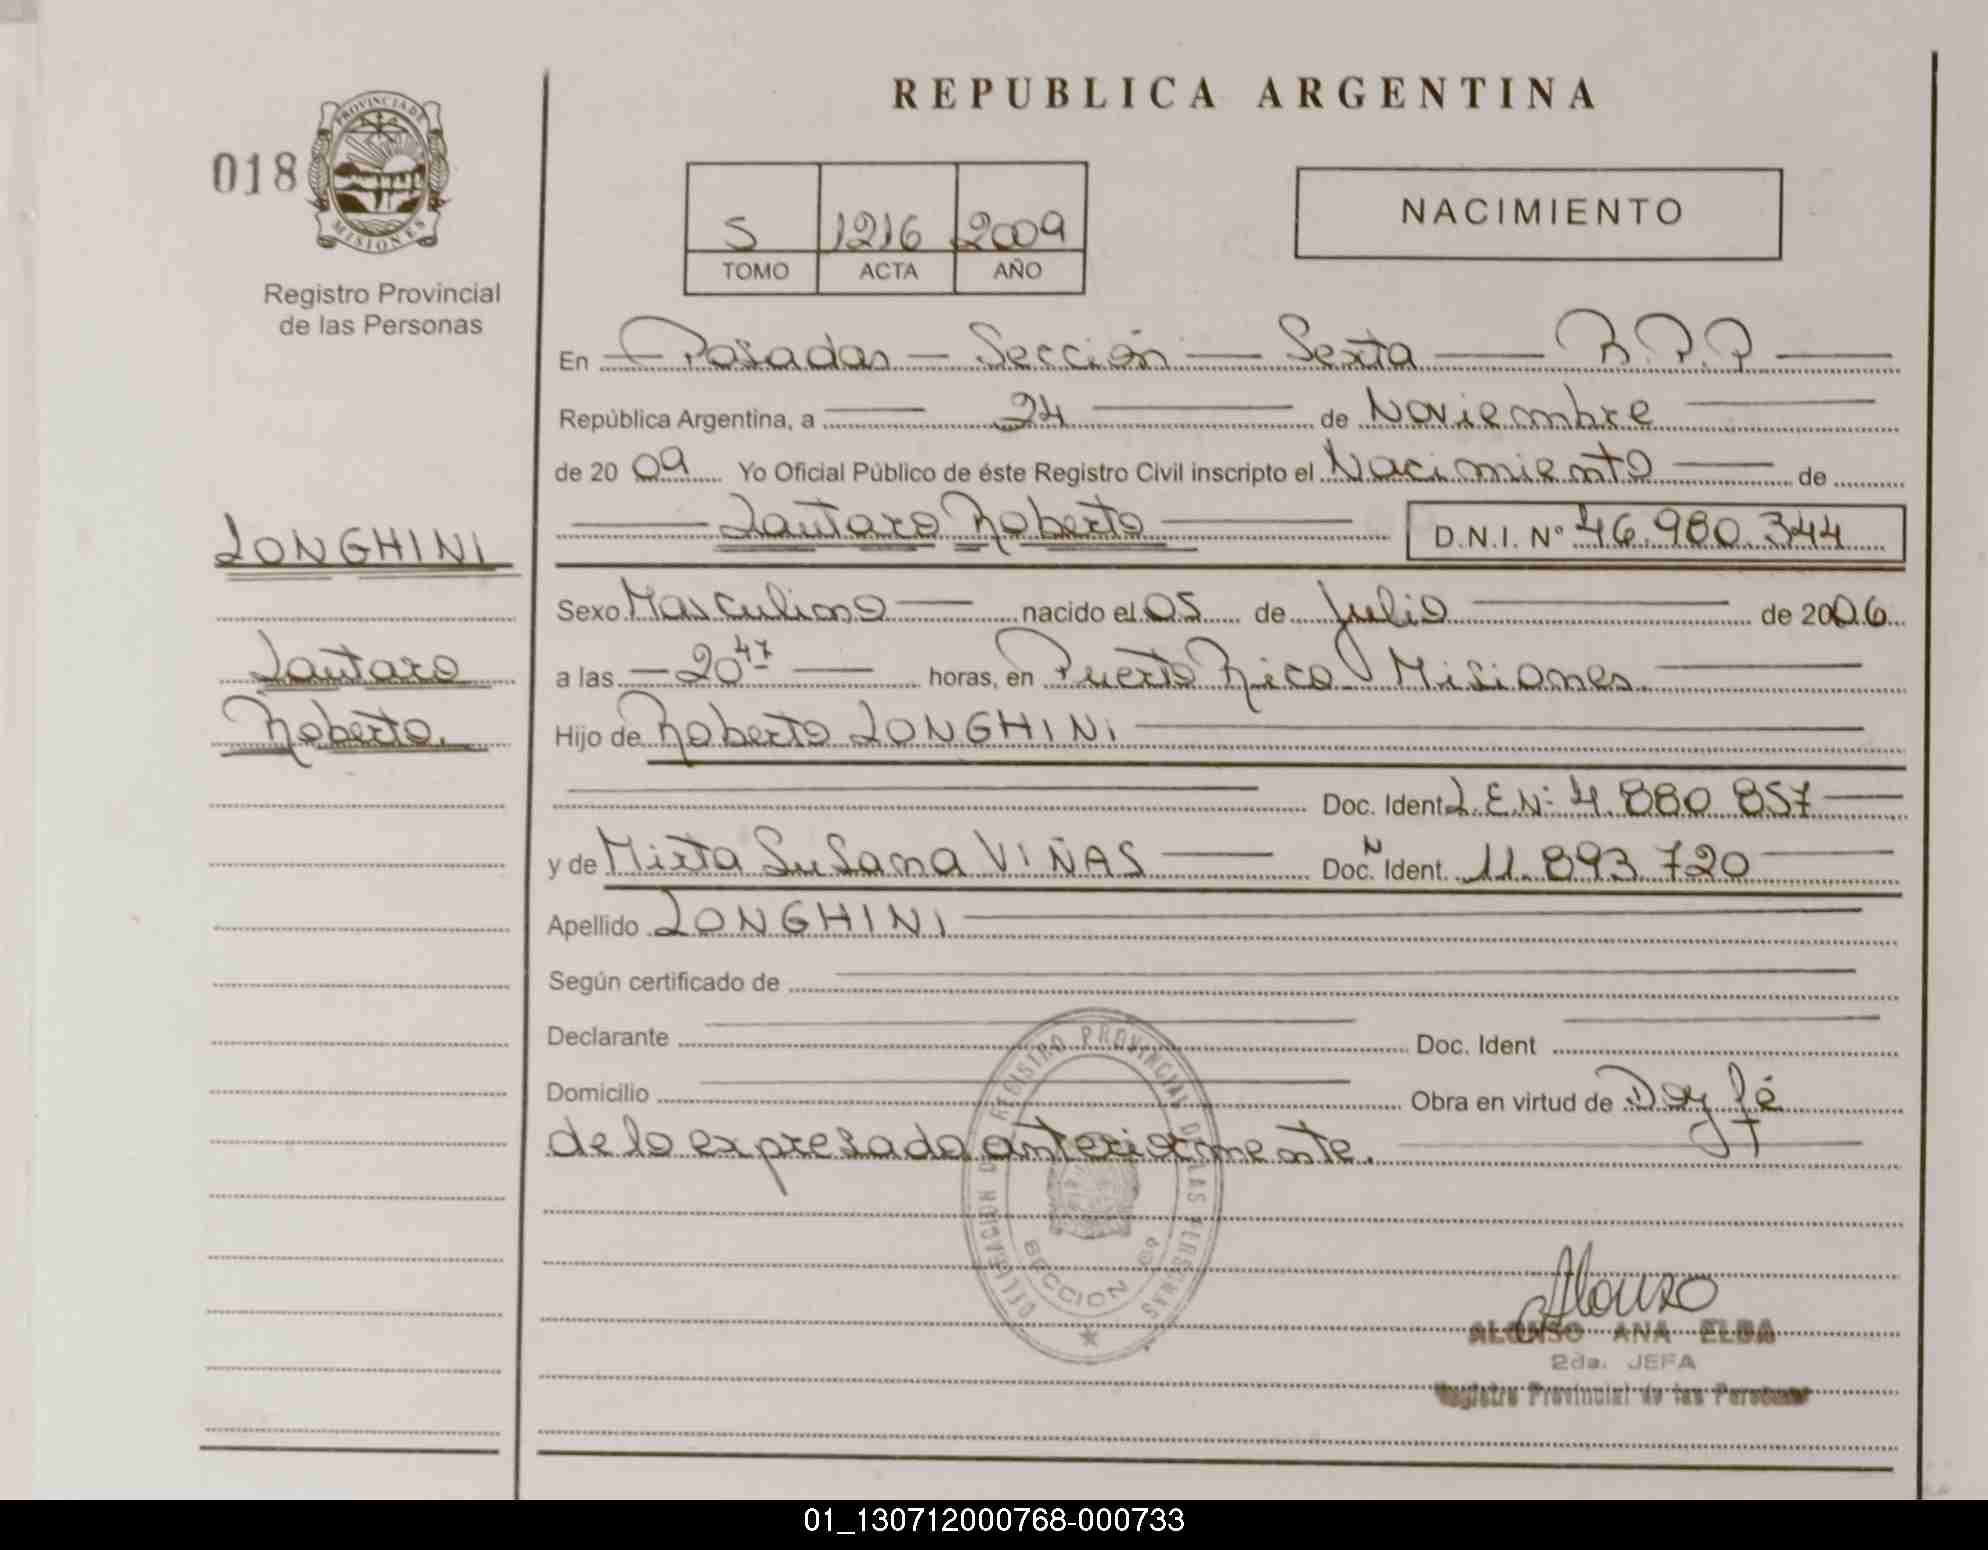 REPUBLICA ARGENTINA
018
PROVINCIA DE MISIONES
Registro Provincial
de las Personas
S 1216 2009
TOMO ACTA AÑO
NACIMIENTO
LONGHINI
Lautaro
Roberto.
En Posadas - Sección - Sexta - R.P.P
República Argentina, a 24 de Noviembre
de 2009 Yo Oficial Público de éste Registro Civil inscripto el Nacimiento de
Lautaro Roberto D.N.I. Nº 46.980.344
Sexo Masculino nacido el 05 de Julio de 2006
a las - 20 47 horas, en Puerto Rico Misiones
Hijo de Roberto LONGHINI
Doc. Ident L.E.Nº 4.880.857
y de Mirta Susana VIÑAS Doc. Ident. N 11.893.720
Apellido LONGHINI
Según certificado de
Declarante Doc. Ident
Domicilio Obra en virtud de Doy fé
de lo expresado anteriormente.
DELEGACION DE REGISTRO PROVINCIAL DE LAS PERSONAS
SECCION 6ª
Alonso
ALONSO ANA ELBA
2da. JEFA
Registro Provincial de las Personas
01_130712000768-000733